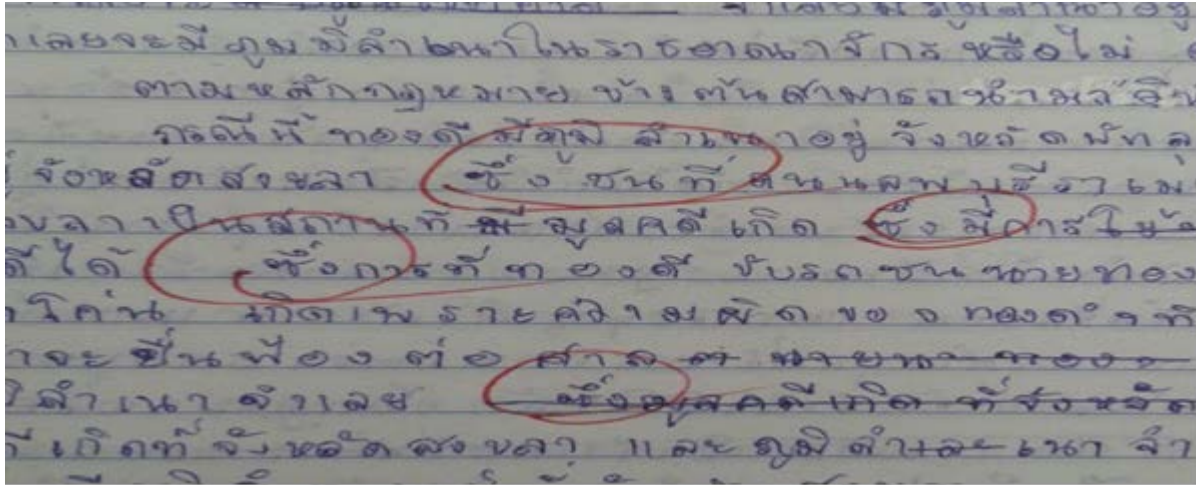 จำเลยจะมีภูมิลำเนาในราชอาณาจักรหรือไม่
ตามหลักกฎหมายข้างต้นสามารถนำมา
กรณีนี้ ทองดีมีภูมิลำเนาอยู่ จังหวัดพัทลุ
จังหวัดสงขลา ซึ่งชนที่ถนนลพบุรีราเม
งขลาเป็นสถานที่ มี มูลคดีเกิด ซึ่งมีการ
ได้ ซึ่งการที่ทองดี ขับรถชนนายทอง
โค่น เกิดเพราะความผิดของทองดำ ที่
จะยื่นฟ้องต่อ ศาล
ลำเนาจำเลย ซึ่งมูลคดีเกิด ที่จังหวัด
เกิดที่จังหวัดสงขลา และภูมิลำ เนา จำ